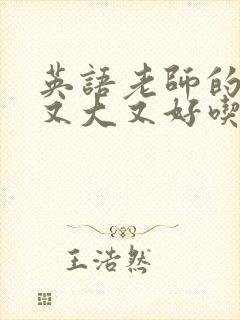 英語老師的
又大又好喫
王浩然